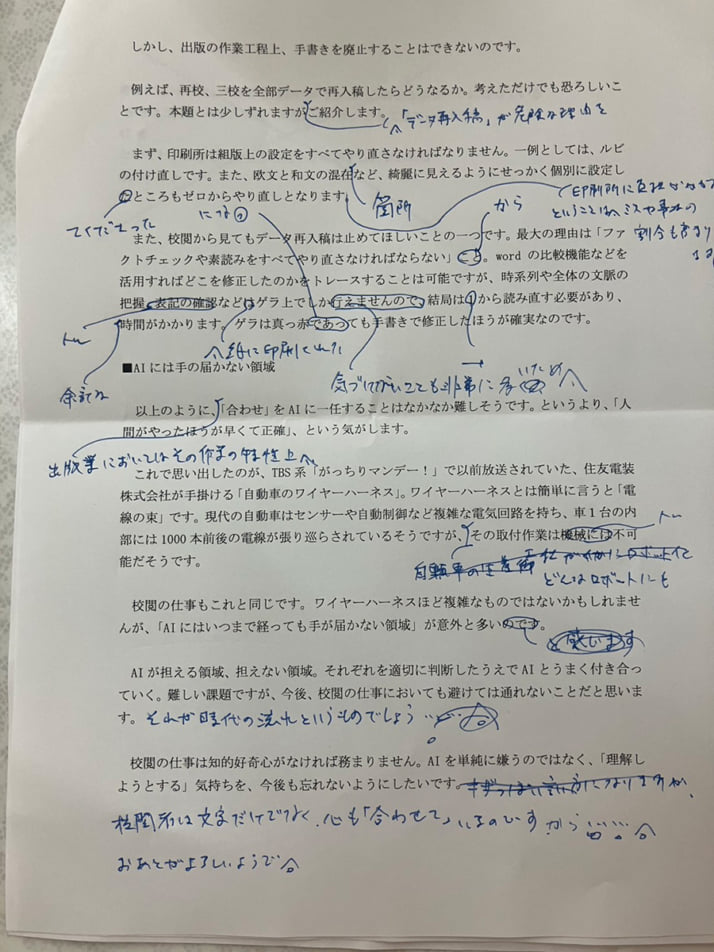 しかし、出版の作業工程上、手書きを廃止することはできないのです。
例えば、再校、三校を全部データで再入稿したらどうなるか。考えただけでも恐ろしいこ
とです。本題とは少しずれますがご紹介します。
「データ再入稿」が危険な理由を
まず、印刷所は組版上の設定をすべてやり直さなければなりません。一例としては、ルビ
の付け直しです。また、欧文と和文の混在など、綺麗に見えるようにせっかく個別に設定し
たところもゼロからやり直しとなります。
箇所
印刷所に負担がかかる
ということは、ミスや事故の
割合も高まり
ます
になる
から
また、校閲から見てもデータ再入稿は止めてほしいことの一つです。最大の理由は「ファ
クトチェックや素読みをすべてやり直さなければならない」こと。wordの比較機能などを
活用すればどこを修正したのかをトレースすることは可能ですが、時系列や全体の文脈の
把握、表記の確認などはゲラ上でしか行えませんので、結局は1から読み直す必要があり、
時間がかかります。ゲラは真っ赤であっても手書きで修正したほうが確実なのです。
トル
紙に印刷された
余計な
■AIには手の届かない領域
気づいて
非常に多いため
以上のように、「合わせ」をAIに一任することはなかなか難しそうです。というより、「人
間がやったほうが早くて正確」、という気がします。
出版業においてはその作業の特性上
これで思い出したのが、TBS系「がっちりマンデー!」で以前放送されていた、住友電装
株式会社が手掛ける「自動車のワイヤーハーネス」。ワイヤーハーネスとは簡単に言うと「電
線の束」です。現代の自動車はセンサーや自動制御など複雑な電気回路を持ち、車1台の内
部には1000本前後の電線が張り巡らされているそうですが、その取付作業は機械には不可
能だそうです。
トル
どんなロボットにも
校閲の仕事もこれと同じです。ワイヤーハーネスほど複雑なものではないかもしれませ
んが、「AIにはいつまで経っても手が届かない領域」が意外と多いのです。
と感じます
AIが担える領域、担えない領域。それぞれを適切に判断したうえでAIとうまく付き合っ
ていく。難しい課題ですが、今後、校閲の仕事においても避けては通れないことだと思いま
す。それが時代の流れというものでしょう
校閲の仕事は知的好奇心がなければ務まりません。AIを単純に嫌うのではなく、「理解し
ようとする」気持ちを、今後も忘れないようにしたいです。キザっぽい言い方になりますが、
校閲者は文字だけでなく、心も「合わせて」いるのですから…。
おあとがよろしいようで